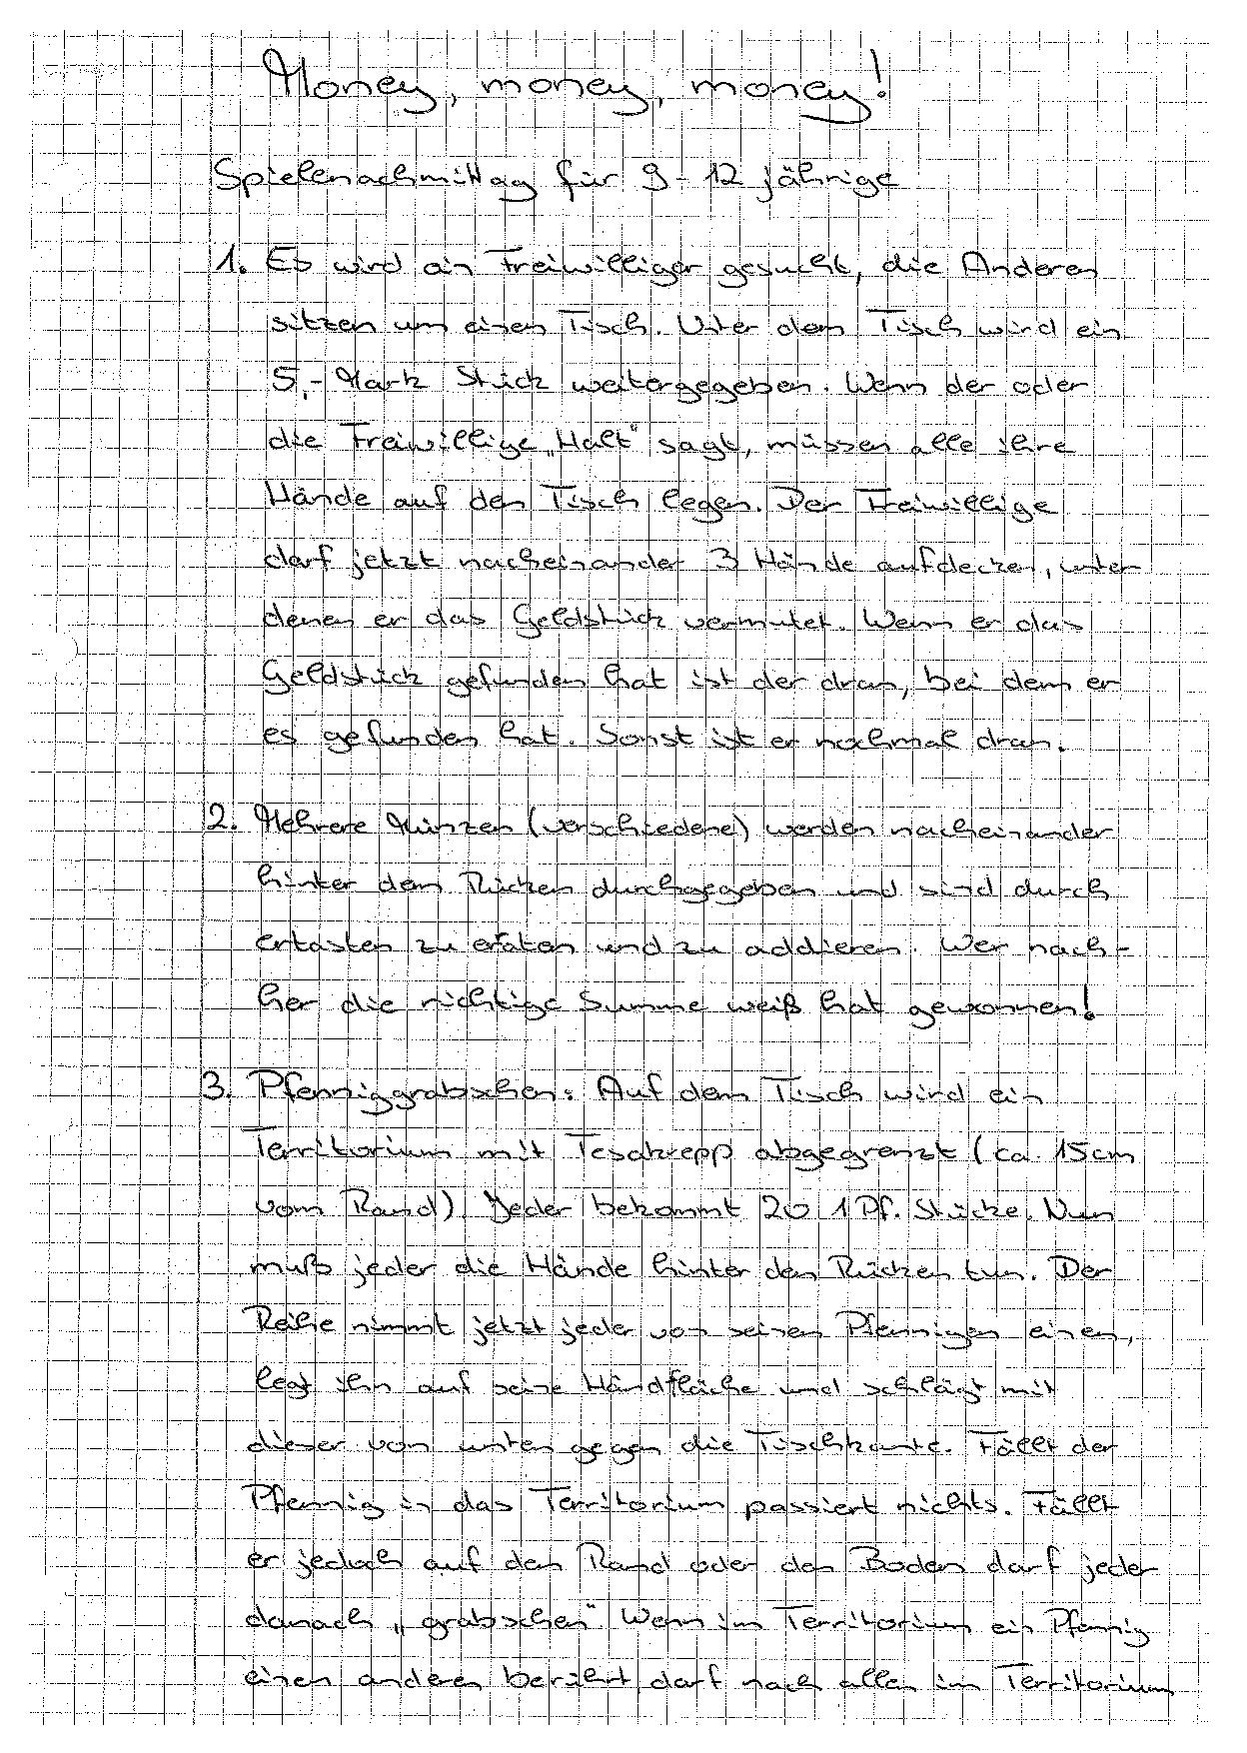 Money, money, money!
Spielenachmittag für 9-12 jährige
1. Es wird ein Freiwilliger gesucht, die Anderen
sitzen um einen Tisch. Unter dem Tisch wird ein
5,- Mark Stück weitergegeben. Wenn der oder
die Freiwillige „Halt" sagt, müssen alle ihre
Hände auf den Tisch legen. Der Freiwillige
darf jetzt nacheinander 3 Hände aufdecken, unter
denen er das Geldstück vermutet. Wenn er das
Geldstück gefunden hat ist der dran, bei dem er
es gefunden hat. Sonst ist er nochmal dran.
2. Mehrere Münzen (verschiedene) werden nacheinander
hinter dem Rücken durchgegeben und sind durch
ertasten zu eraten und zu addieren. Wer nach-
her die richtige Summe weiß hat gewonnen!
3. Pfenniggrabschen: Auf dem Tisch wird ein
Territorium mit Tesakrepp abgegrenzt (ca. 15cm
vom Rand). Jeder bekommt 20 1 Pf. Stücke. Nun
muß jeder die Hände hinter den Rücken tun. Der
Reihe nimmt jetzt jeder von seinen Pfennigen einen,
legt ihn auf seine Handfläche und schlägt mit
dieser von unten gegen die Tischkante. Fällt der
Pfennig in das Territorium passiert nichts. Fällt
er jedoch auf den Rand oder den Boden darf jeder
danach „grabschen" Wenn im Territorium ein Pfennig
einen anderen berührt darf nach allen im Territorium